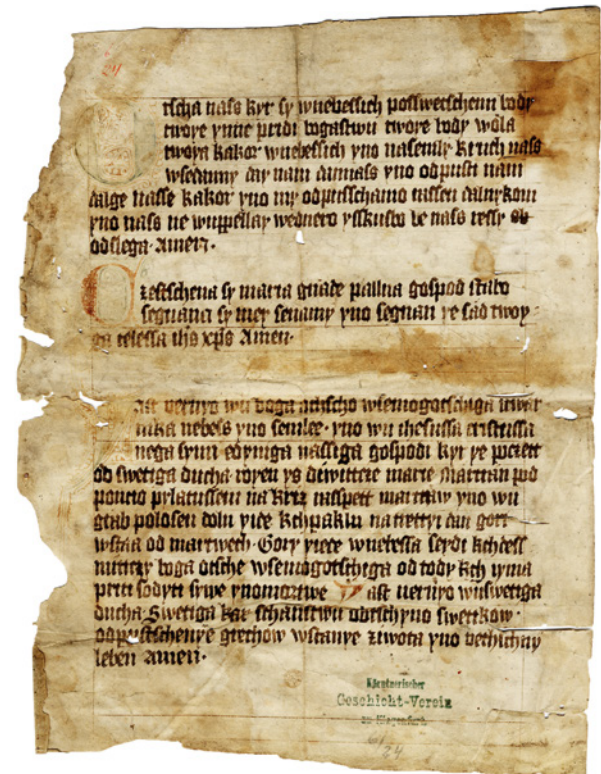 tscha nass kyr sy wnebessich posswetschenu body
twoye ymme pridi bogastwu twore body wola
twoya kakor wnebessich yno nasemly kruch nass
wsedanny day nam dannass yno odpusti nam
dalge nasse kakor yno my odpusschamo nassen dalnykom
yno nass ne wuppellay wednero ysskusbo le nass ressy od
odslega Amen.
Czestschena sy maria gnade pallna gospod stabo
segnana sy mey senamy yno segnan ye sad twoy
ga telessa ihs xps Amen.
ast veruyo wu boga otschzo wsemogotschiga stwar
nika nebess yno semlee. yno wu ihesussa cristussa
nega synu edyniga nassiga gospodi kyr ye poczett
od swetiga ducha royen ys diwittcze marie Martran pod
poncio pylatussem na kriz rasspett martuw yno wu
grab polosen doln yide kchpaklu na trettyi dan gori
wstaa od martwech. Gory yiede wnebessa sedi kchdess
nittczy boga otsche wsemogotschiga od tody kch ymia
priti sodyti sywe ynomortwe Iast veruyo wuswetiga
ducha Swetiga kar schanstwu obtschyno swettkow.
odpustschenye grechow wstanye ziwota yno vechichny
leben amen.
Geschicht-Verein
zu Klagenfurt
24